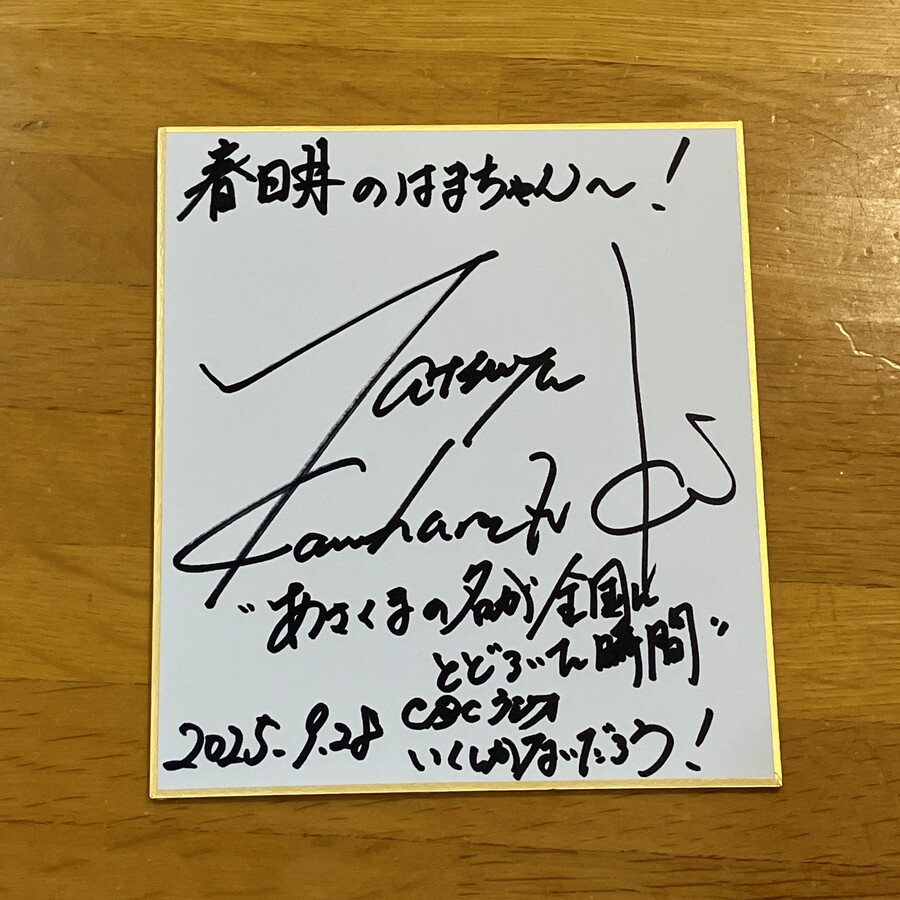 春日井のはまちゃん〜!
Tatsuya
Kawahara
"あさくまの名が全国に
とどろいた時間"
2025.9.28
CBCラジオ
いくしかないだろう!